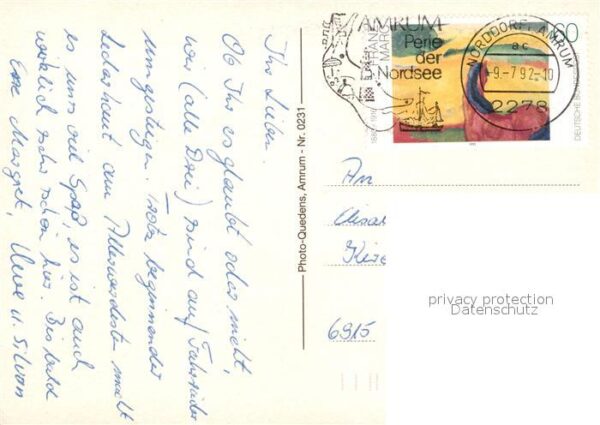 Ihr Lieben.
Ob Ihr es glaubt oder nicht,
wir (alle Drei) sind auf Fahrräder
umgestiegen. Trotz beginnender
Lederhaut am Allerwertesten macht
es uns viel Spaß, es ist auch
wirklich sehr schön hier. Bis bald
Eure Margret, Uwe u. Silvan
Photo-Quedens, Amrum - Nr. 0231
AMRUM
Perle
der
Nordsee
60
NORDDORF, AMRUM
ac
-9.-7.92.-10
2278
DEUTSCHE BUNDESPOST
An
6915
privacy protection
Datenschutz